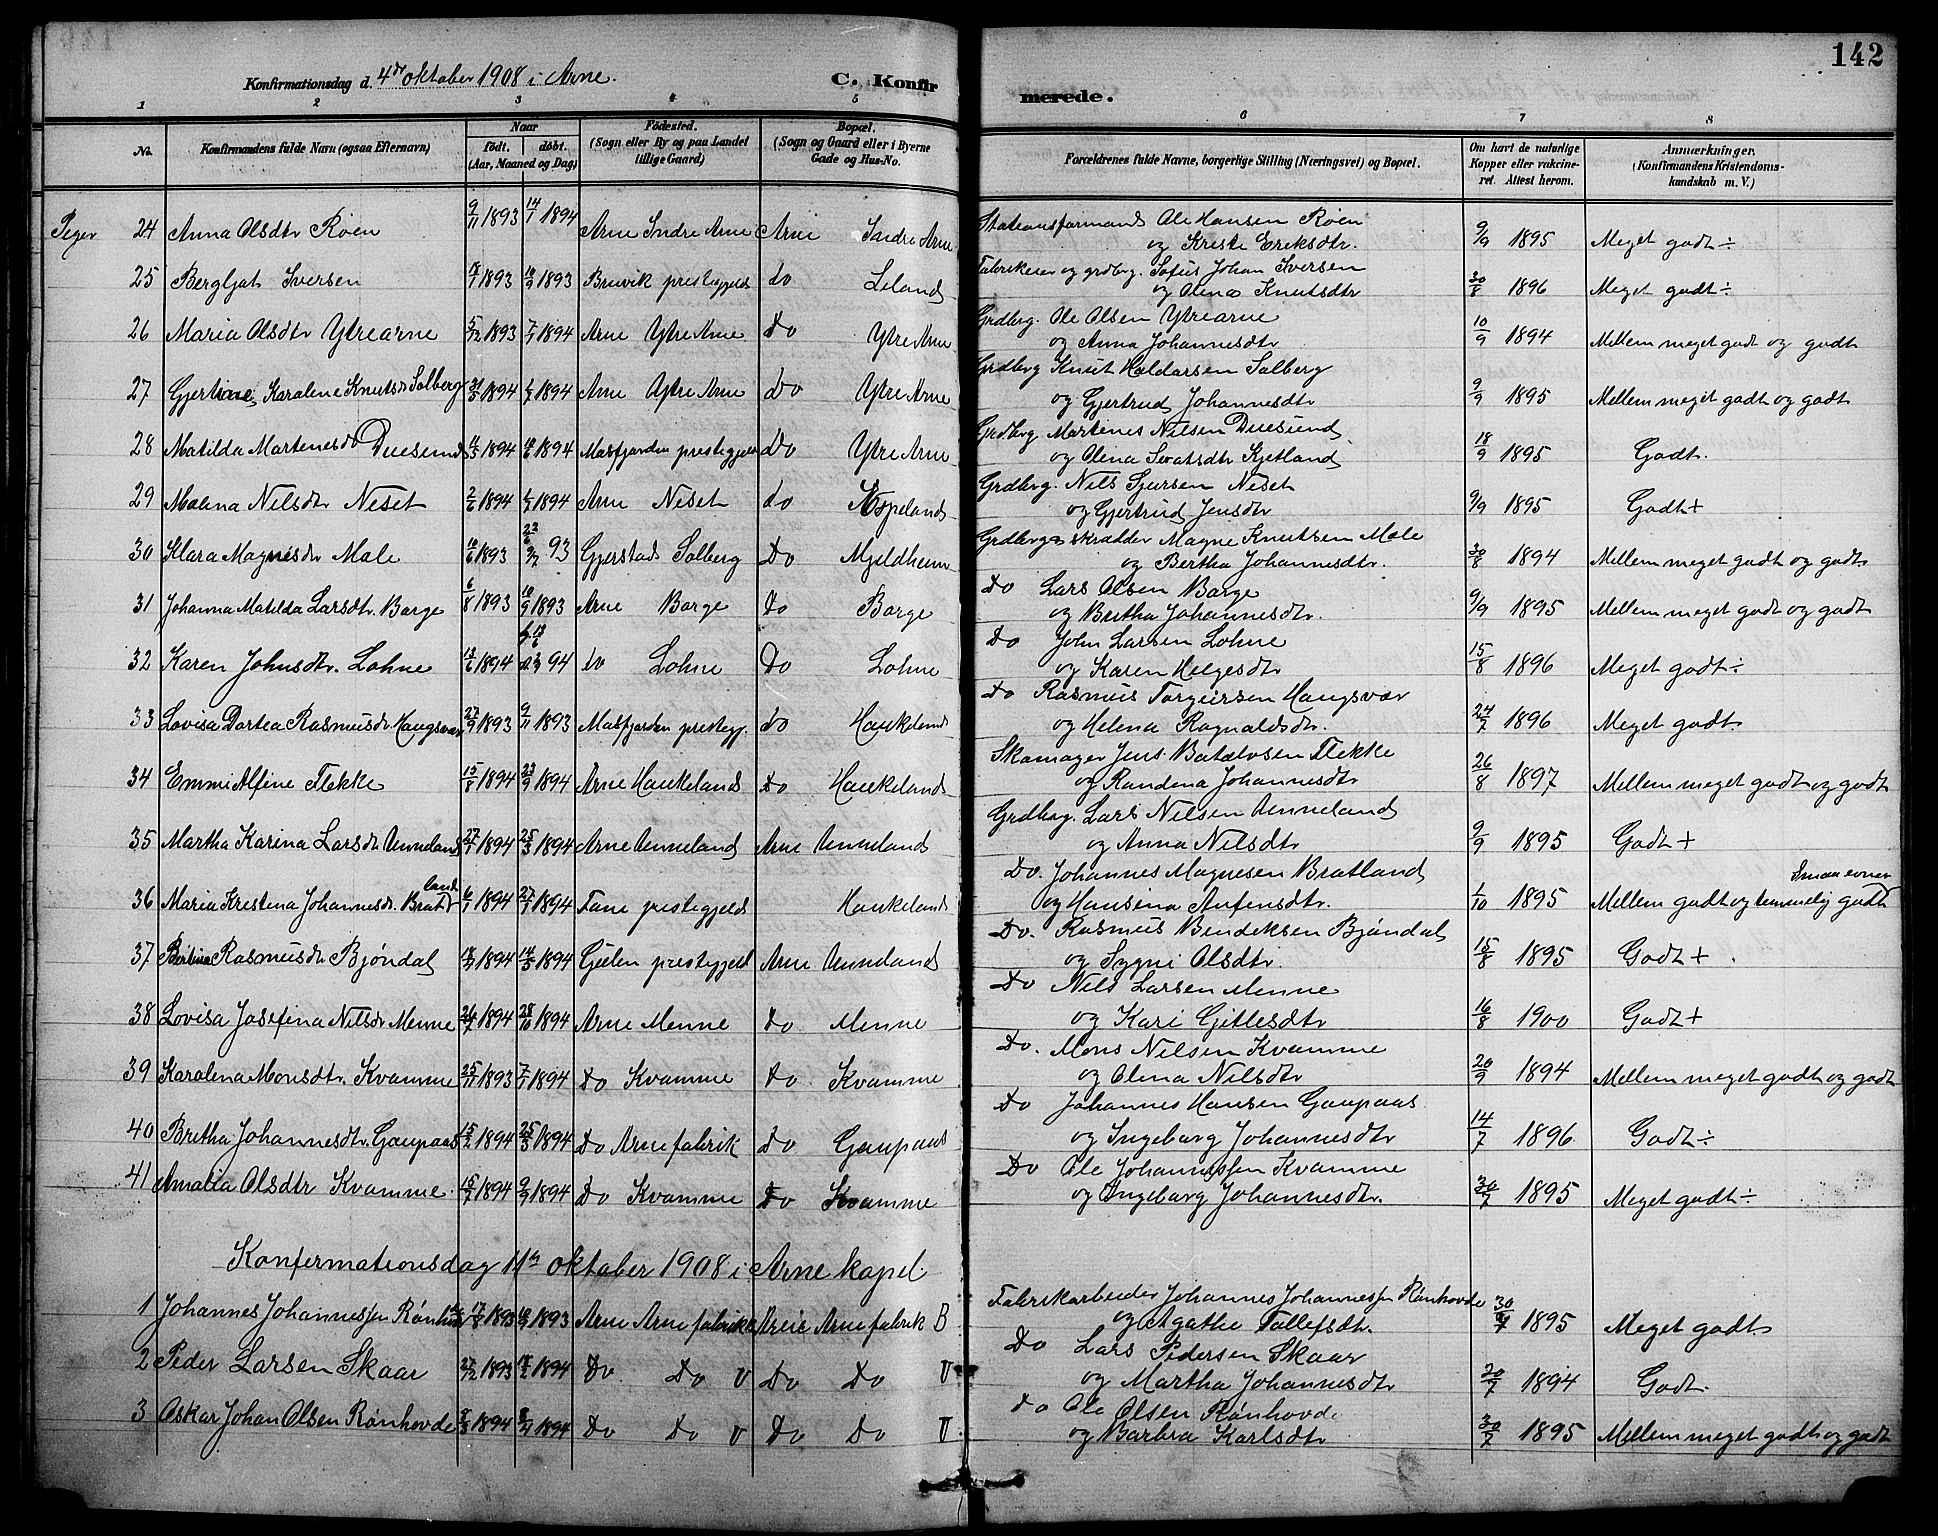 142
Konfirmationsdag d. 4de oktober 1908 i Arne.
C. Konfirmerede.
1 2 3 4 5 6 7 8
No.
Konfirmandens fulde Navn (ogsaa Efternavn)
Naar
født. døbt.
(Aar, Maaned og Dag)
Fødested.
(Sogn eller By og paa Landet
tillige Gaard)
Bopæl.
(Sogn og Gaard eller i Byerne
Gade og Hus-No.
Forældrenes fulde Navne, borgerlige Stilling (Næringsvei) og Bopæl.
Om havt de naturlige
Kopper eller vakcine-
ret. Attest herom.
Anmærkninger,
(Konfirmandens Kristendoms-
kundskab m. V.)
Piger 24 Anna Olsdtr Røen 9/11 1893 14/1 1894 Arne Indre Arne Arne Indre Arne Stationsformand Ole Hansen Røen
og Kristi Eriksdtr. 9/9 1895 Meget godt ÷
25 Bergljot Iversen 1893 1893 Bruvik prestegjeld do Leland Fabrikeier og grdbrg. Sofus Johan Iversen
og Olena Knutsdtr 30/8 1896 Meget godt ÷
26 Maria Olsdtr Ytrearne 5/12 1893 7/1 1894 Arne Ytre Arne Do Ytre Arne Grdbrg. Ole Olsen Ytrearne
og Anna Johannesdtr 10/9 1894 Mellem meget godt og godt
27 Gjertine Karolene Knutsd Solberg 31/5 1894 1894 Arne Ytre Arne do Ytre Arne Grdbrg Knut Haldorsen Solberg
og Gjertrud Johannesdtr 9/9 1895 Mellem meget godt og godt
28 Matilda Martenesdtr Duesund 1894 1894 Masfjorden prestegjeld do Ytre Arne Grdbrg Martines Nilsen Duesund
og Olena Ivatsdtr Kjetland 18/9 1895 Godt.
29 Malena Nilsdtr Neset 2/6 1894 1894 Arne Neset do Espeland Grdbrg. Nils Sjursen Neset
og Gjertrud Jensdtr 9/9 1895 Godt +
30 Klara Magnesdtr Male 10/6 1893 23/6 93 Gjerstad Solberg Do Mjeldheim Grdbrg og skrædder Magne Knutsen Male
og Bertha Johannesdtr. 30/8 1894 Mellem meget godt og godt
31 Johanna Matilda Larsdtr. Borge 6/8 1893 10/9 1893 Arne Borge Do Borge Do Lars Olsen Borge
og Bretha Johannesdtr. 9/9 1895 Mellem meget godt og godt
32 Karen Johnsdtr. Lohne 13/6 1894 94 do Lohne Do Lohne Do John Larsen Lohne
og Karen Helgesdtr 15/8 1896 Meget godt ÷
33 Lovisa Dortea Rasmusdtr Haugsvær 27/9 1893 9/11 1893 Masfjorden prestegj. do Haukeland Do Rasmus Torgeirsen Haugsvær
og Helena Ragnaldsdtr. 24/7 1896 Meget godt.
34 Emmi Alfine Flekke 15/8 1894 23/9 1894 Arne Haukeland Do Haukeland Skomager Jens Batalvsen Flekke
og Randena Johannesdtr 26/8 1897 Mellem meget godt og godt
35 Martha Karina Larsdtr Unneland 27/1 1894 25/3 1894 Arne Unneland Arne Unneland Grdbrg. Lars Nilsen Unneland
og Anna Nilsdtr 9/9 1895 Godt +
36 Maria Kristina Johannesdtr. Bratland 6/1 1894 27/1 1894 Fane prestegjeld Haukeland Do. Johannes Magnesen Bratland
og Hansina Anfensdtr. 1/10 1895 Mellem godt og temmelig godt Smaa evner
37 Bertina Rasmusdtr Bjøndal 1894 1894 Gulen prestegjeld Arne Unneland Do. Rasmus Bendiksen Bjøndal
og Sygni Olsdtr. 15/8 1895 Godt +
38 Lovisa Josefina Nilsdtr Menne 1894 28/10 1894 Arne Menne Do Menne Do Nils Larsen Menne
og Kari Gitlesdtr 16/8 1900 Godt +
39 Karolena Monsdtr. Kvamme 25/11 1893 7/1 1894 Do Kvamme do Kvamme Do. Mons Nilsen Kvamme
og Olena Nilsdtr 20/9 1894 Mellem meget godt og godt
40 Bretha Johannesdtr. Gaupaas 15/2 1894 25/3 1894 Do Arne fabrik Do Gaupaas Do Johannes Hansen Gaupaas
og Ingeborg Johannesdtr 14/7 1896 Godt ÷
41 Amalia Olsdtr Kvamme. 15/7 1894 9/9 1894 Do Kvamme Do Kvamme Do Ole Johannessen Kvamme
og Ingeborg Johannesdtr. 30/7 1895 Meget godt ÷
Konfermationsdag 11te oktober 1908 i Arne kapel
1 Johannes Johannessen Rønhovde 1893 1893 Arne Arne fabrikk Arne Arne fabrik B Fabrikarbeider Johannes Johannessen Rønhovde
og Agathe Tollefsdtr. 1895 Meget godt.
2 Peder Larsen Skaar 27/12 1893 1894 Do Do V Do Do V Do Lars Pedersen Skaar
og Martha Johannesdtr 20/7 1894 Godt.
3 Oskar Johan Olsen Rønhovde 1894 1894 Do Do V Do Do V do Ole Olsen Rønhovde
og Barbra Karlsdtr 30/7 1895 Mellem meget godt og godt